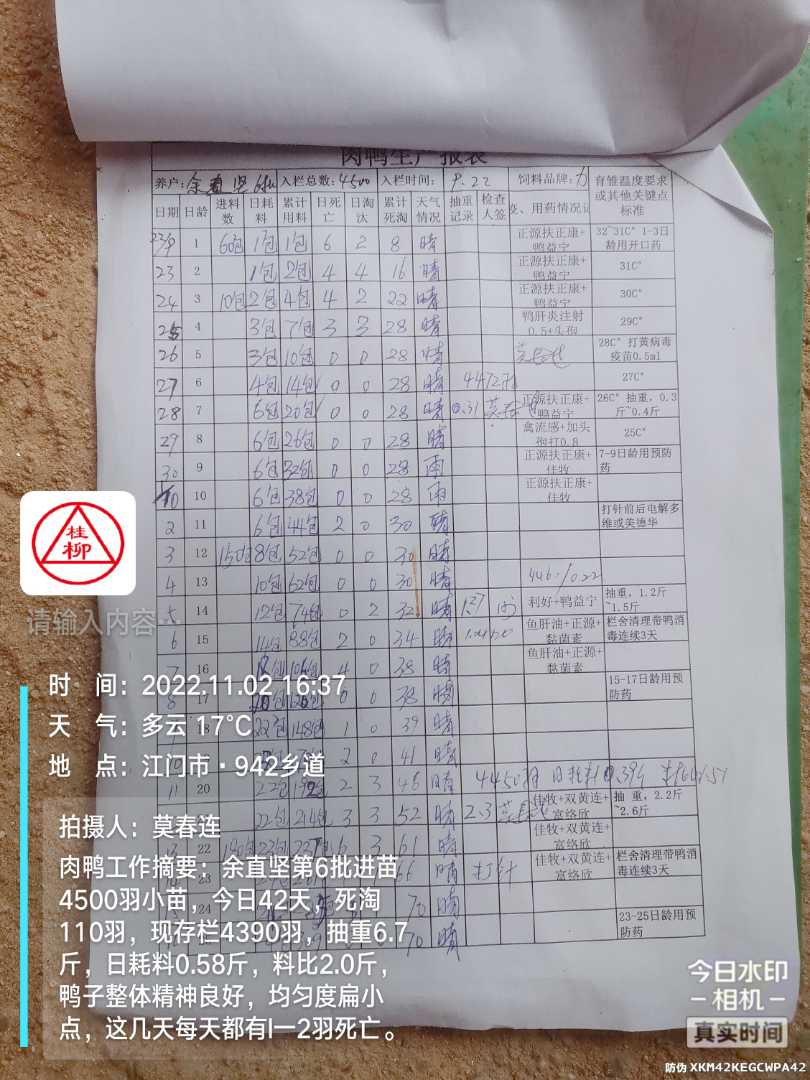 肉鸭生产报表
养户: 余直坚6批 入栏总数: 4500 入栏时间: 9.22 饲料品牌: 育雏温度要求或其他关键点标准
日期 日龄 进料数 日耗料 累计用料 日死亡 日淘汰 累计死淘 天气情况 抽重记录 检查人签 用药情况记
1 60包 1包 1包 6 2 8 晴 正源扶正康+鸭益宁 32~31C° 1-3日龄用开口药
23 2 1包 2包 4 4 16 晴 正源扶正康+鸭益宁 31C°
24 3 10包 2包 4包 4 2 22 晴 正源扶正康+鸭益宁 30C°
25 4 3包 7包 3 3 28 晴 鸭肝炎注射0.5+头孢 29C°
26 5 3包 10包 0 0 28 晴 28C° 打黄病毒疫苗0.5ml
27 6 4包 14包 0 0 28 晴 27C°
28 7 6包 20包 0 0 28 晴 0.31 正源扶正康+鸭益宁 26C° 抽重,0.3斤~0.4斤
29 8 6包 26包 0 0 28 晴 禽流感+加头孢打0.8 25C°
30 9 6包 32包 0 0 28 雨 正源扶正康+佳牧 7-9日龄用预防药
10 6包 38包 0 0 28 雨 正源扶正康+佳牧
2 11 6包 44包 2 0 30 晴 打针前后电解多维或美德华
3 12 150包 8包 52包 0 0 30 晴
4 13 10包 62包 0 0 30 晴
5 14 12包 74包 0 2 32 晴 1.27 利好+鸭益宁 抽重,1.2斤~1.5斤
6 15 14包 88包 2 0 34 晴 鱼肝油+正源+黏菌素 栏舍清理带鸭消毒连续3天
7 16 4 0 38 晴 鱼肝油+正源+黏菌素
8 17 0 0 38 晴 15-17日龄用预防药
18 22包 148包 1 0 39 晴
2 0 41 晴
11 20 22包 2 3 46 晴 4450羽 日耗料0.39斤
22包 3 3 52 晴 2.3 佳牧+双黄连+富络欣 抽重,2.2斤~2.6斤
22 6 3 61 晴 佳牧+双黄连+富络欣
23 66 晴 打针 佳牧+双黄连+富络欣 栏舍清理带鸭消毒连续3天
24 70 晴
70 晴 23-25日龄用预防药
桂柳
请输入内容…
时 间: 2022.11.02 16:37
天 气: 多云 17℃
地 点: 江门市·942乡道
拍摄人: 莫春连
肉鸭工作摘要: 余直坚第6批进苗
4500羽小苗，今日42天，死淘
110羽，现存栏4390羽，抽重6.7
斤，日耗料0.58斤，料比2.0斤，
鸭子整体精神良好，均匀度扁小
点，这几天每天都有l一2羽死亡。
今日水印
-相机-
真实时间
防伪 XKM42KEGCWPA42